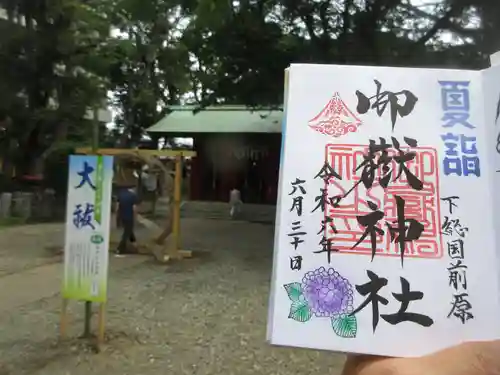 大祓
夏詣
下総国前原
御嶽神社
令和六年
六月三十日